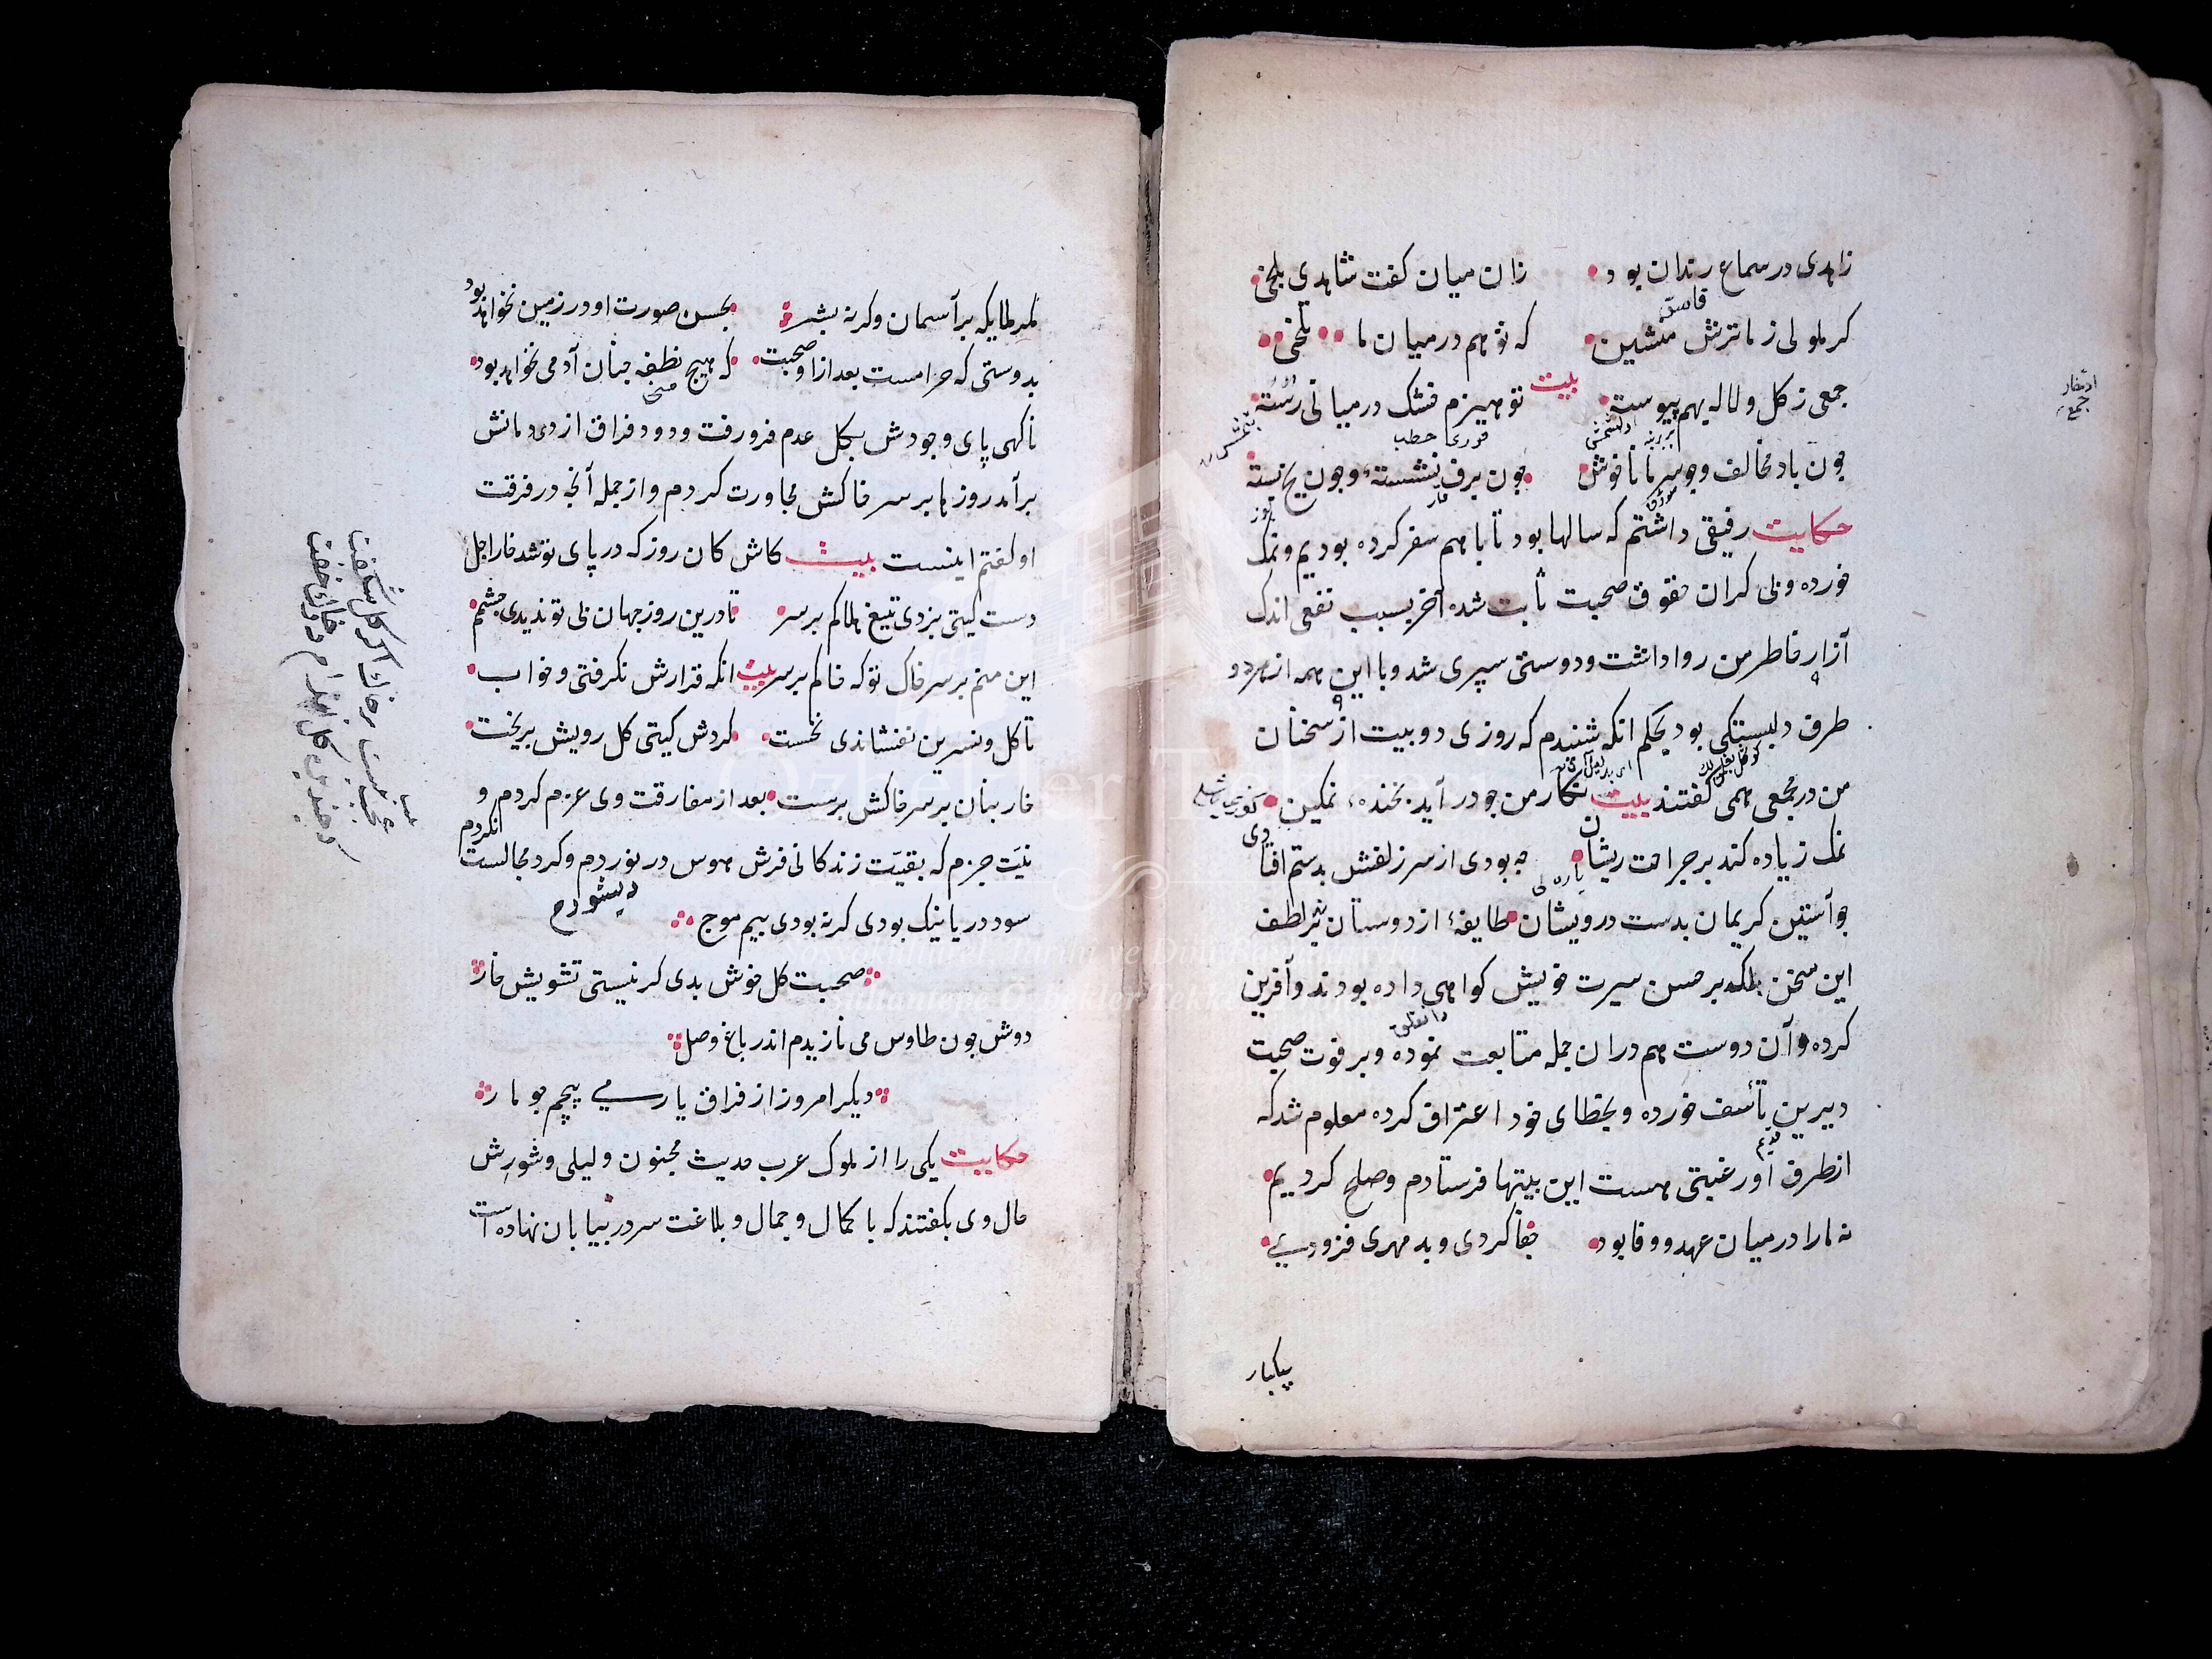 زاهدی در سماع رندان بود زان میان کفت شاهدی بلخی
فاسق
کر ملولی ز ما ترش منشین که تو هم در میان ما تلخی
بیت
جمعی ز کل و لاله بهم پیوسته تو هیزم خشک در میانی رسته
قوری حطب
جون باد مخالف و جو سرما ناخوش جون برف نشسته و جون یخ بسته
حکایت رفیقی داشتم که سالها بود تا با هم سفر کرده بودیم و نمک
خورده و بی کران حقوق صحبت ثابت شده آخر بسبب نفعی اندک
آزار خاطر من روا داشت و دوستی سپری شد و با این همه از هر دو
طرف دلبستکی بود بحکم انکه شنندم که روزی دو بیت از سخنان
من در مجمعی همی کفتند بیت نکار من جو در آید بخنده نمکین
نمک زیاده کند بر جراحت ریشان جه بودی از سر زلفش بدستم افتادی
یاره لی
جو آستین کریمان بدست درویشان طایفهٔ از دوستان بر لطف
این سخن بلکه بر حسن سیرت خویش کواهی داده بودند و آفرین
کرده و آن دوست هم دران جمله متابعت نموده و بر فوت صحبت
دیرین تأسف خورده و بخطای خود اعتراف کرده معلوم شد که
قدیم
از طرف او رغبتی هست این بیتها فرستادم و صلح کردیم
نه مارا در میان عهد و وفا بود جفا کردی و بد مهری فزودی
بیکبار
مکر ملایکه بر آسمان وکرنه بشر بحسن صورت او در زمین نخواهد بود
بدوستی که حرامست بعد ازو صحبت که هیچ نطفه جنان آدمی نخواهد بود
منی
ناکهی پای وجودش بکل عدم فرو رفت و دود فراق از دودمانش
برآمد روزها بر سر خاکش مجاورت کردم و از جمله آنجه در فرقت
او کفتم اینست بیت کاش کان روز که در پای تو شد خار اجل
دست کیتی بزدی تیغ هلاکم بر سر تا درین روز جهان بی تو ندیدی جشمم
این منم بر سر خاک تو که خاکم بر سر بیت انکه قرارش نکرفتی و خواب
تا کل و نسرین نفشاندی نخست کردش کیتی کل رویش بریخت
خار بنان بر سر خاکش برست بعد از مفارقت وی عزم کردم و
نیت جزم که بقیت زندکانی فرش هوس در نوردم و کرد مجالست نکردم
دیشوردم
سود دریا نیک بودی کر نه بودی بیم موج
صحبت کل خوش بدی کر نیستی تشویش خار
دوش جون طاوس می نازیدم اندر باغ وصل
دیکر امروز از فراق یار می پیچم جو مار
حکایت یکی را از ملوک عرب حدیث مجنون و لیلی و شورش
حال وی بکفتند که با کمال و جمال و بلاغت سر در بیابان نهاده است